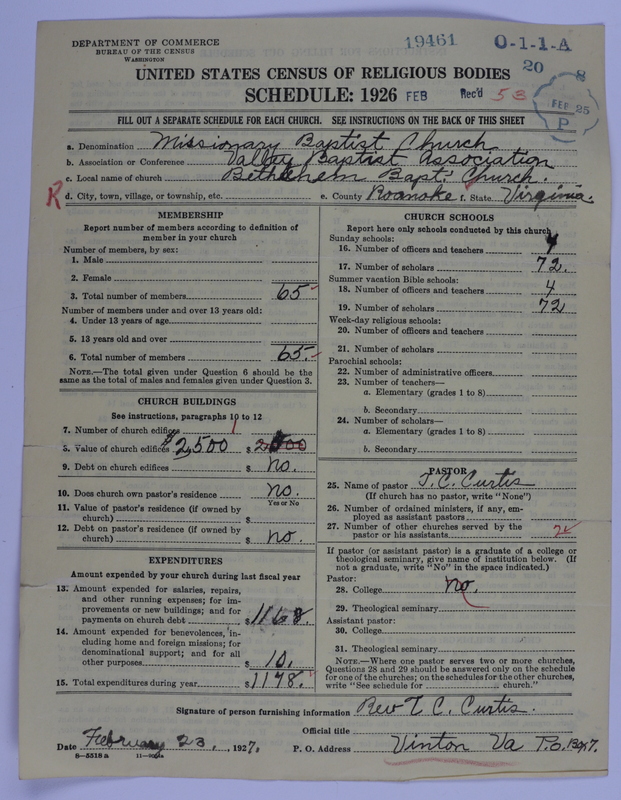 DEPARTMENT OF COMMERCE
BUREAU OF THE CENSUS
WASHINGTON
19461 O-1-1-A
20 8
UNITED STATES CENSUS OF RELIGIOUS BODIES
SCHEDULE: 1926 FEB Rec'd 53
FEB 25
P
FILL OUT A SEPARATE SCHEDULE FOR EACH CHURCH. SEE INSTRUCTIONS ON THE BACK OF THIS SHEET
a. Denomination Missionary Baptist Church
b. Association or Conference Valley Baptist Association
c. Local name of church Bethlehem Bapt. Church.
R d. City, town, village, or township, etc. e. County Roanoke f. State Virginia.
MEMBERSHIP
Report number of members according to definition of
member in your church
Number of members, by sex:
1. Male
2. Female
3. Total number of members 65
Number of members under and over 13 years old:
4. Under 13 years of age
5. 13 years old and over
6. Total number of members 65.
NOTE.—The total given under Question 6 should be the
same as the total of males and females given under Question 3.
CHURCH BUILDINGS
See instructions, paragraphs 10 to 12
7. Number of church edifices 1
8. Value of church edifices $2,500 $
9. Debt on church edifices $ no.
10. Does church own pastor's residence no.
Yes or No
11. Value of pastor's residence (if owned by
church) $
12. Debt on pastor's residence (if owned by
church) $ no.
EXPENDITURES
Amount expended by your church during last fiscal year
13. Amount expended for salaries, repairs,
and other running expenses; for im-
provements or new buildings; and for
payments on church debt $ 1168.
14. Amount expended for benevolences, in-
cluding home and foreign missions; for
denominational support; and for all
other purposes $ 10.
15. Total expenditures during year $ 1178.
CHURCH SCHOOLS
Report here only schools conducted by this church
Sunday schools:
16. Number of officers and teachers 4
17. Number of scholars 72.
Summer vacation Bible schools:
18. Number of officers and teachers 4
19. Number of scholars 72
Week-day religious schools:
20. Number of officers and teachers
21. Number of scholars
Parochial schools:
22. Number of administrative officers
23. Number of teachers—
a. Elementary (grades 1 to 8)
b. Secondary
24. Number of scholars—
a. Elementary (grades 1 to 8)
b. Secondary
PASTOR
25. Name of pastor T. C. Curtis
(If church has no pastor, write "None")
26. Number of ordained ministers, if any, em-
ployed as assistant pastors
27. Number of other churches served by the
pastor or his assistants 2
If pastor (or assistant pastor) is a graduate of a college or
theological seminary, give name of institution below. (If
not a graduate, write "No" in the space indicated.)
Pastor:
28. College no.
29. Theological seminary
Assistant pastor:
30. College
31. Theological seminary
NOTE.—Where one pastor serves two or more churches,
Questions 28 and 29 should be answered only on the schedule
for one of the churches; on the schedules for the other churches,
write "See schedule for church."
Signature of person furnishing information Rev T. C. Curtis.
Official title
Date February 23, , 1927. P. O. Address Vinton Va P.O. Box 7.
8—5518 a